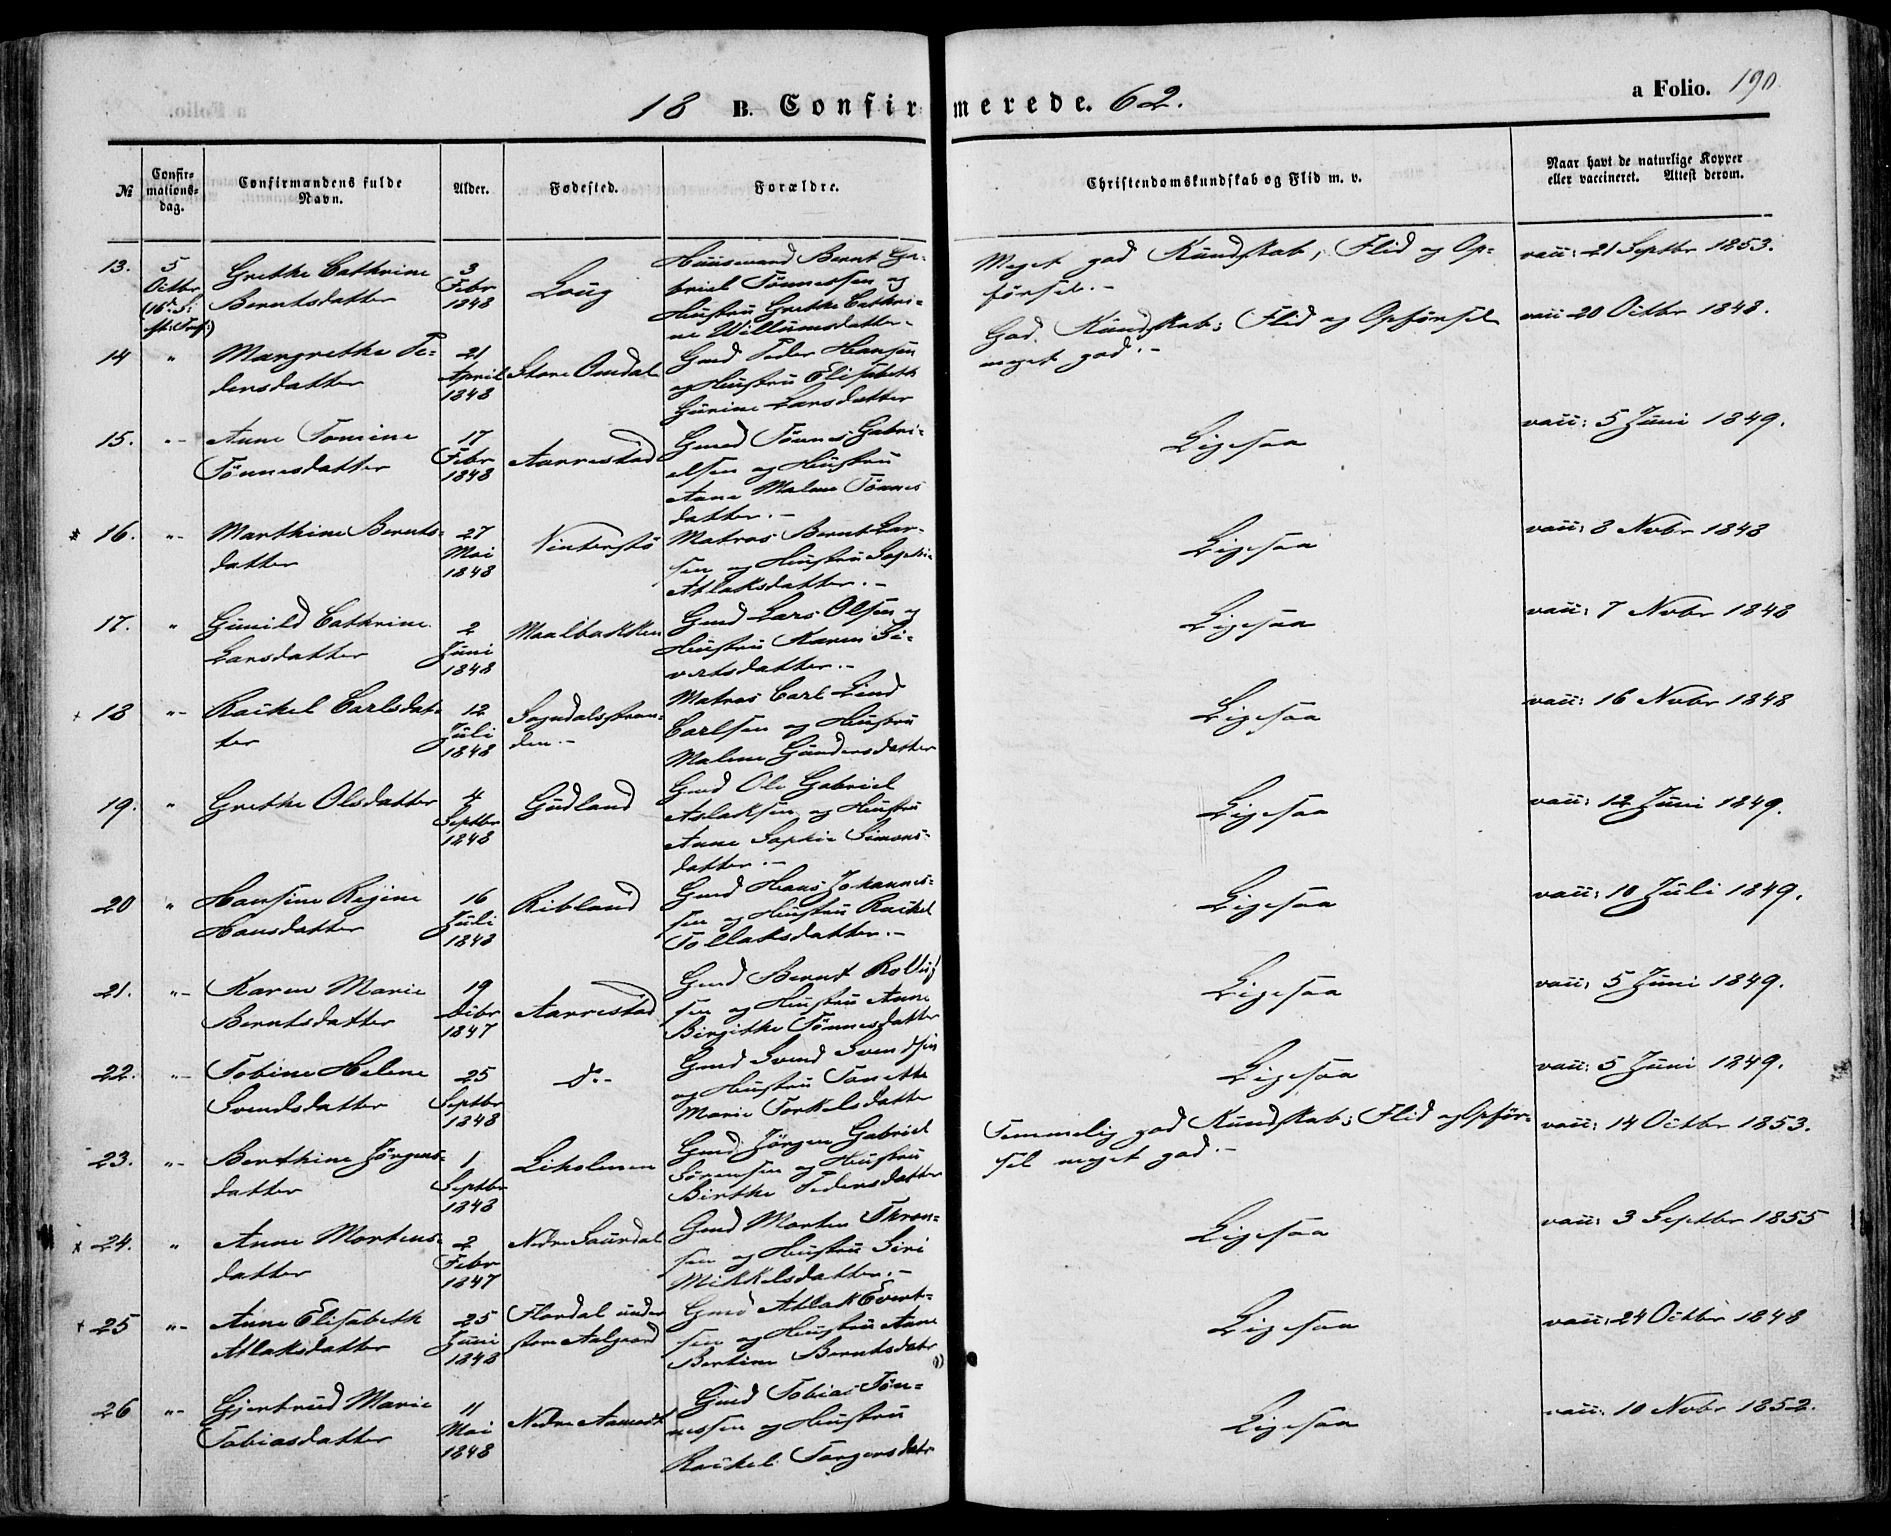 18 B. Confirmerede. 62.
a Folio. 190.
№
Confirmations-dag.
Confirmandens fulde Navn.
Alder.
Fødested.
Forældre.
Christendomskundskab og Flid m. v.
Naar havt de naturlige Kopper eller vaccineret. Attest derom.
13. 5 Octbr (16de S: ft: Tref:) Grethe Cathrine Berntsdatter 3 Febr 1848 Loug Huusmand Bernt Gabriel Tønnessen og Hustru Grethe Cathrine Willumsdatter.- Meget god Kundskab, Flid og Opførsel.- vacc: 21 Septbr 1853.
14 " Margrethe Pedersdatter 21 April 1848 Store Omdal Gmd Peder Hansen og Hustru Elisabeth Gurine Larsdatter God Kundskab; Flid og Opførsel meget god.- vacc 20 Octbr 1848.
15. "- Anne Tomine Tönnesdatter 17 Febr 1848 Aarrestad Gmd Tönnes Gabrielsen og Hustru Anne Malene Tönnesdatter.- Ligesaa vacc: 5 Juni 1849.
16. "- Marthine Berntsdatter 27 Mai 1848 Vinterstö Matros Bernt Larsen og Hustru Sophie Atlaksdatter.- Ligesaa vacc: 8 Novbr 1848
17. " Gunild Cathrine Larsdatter 2 Juni 1848 Maalbakken Gmd Lars Olsen og Hustru Karen Sivertsdatter.- Ligesaa vacc: 7 Novbr 1848
+ 18 "- Rachel Carlsdatter 12 Juli 1848 Sogndalsstranden.- Matros Carl Lind Carlsen og Hustru Malene Gundersdatter Ligesaa vacc: 16 Novbr 1848
19. " Grethe Olsdatter 4 Septbr 1848 Gudland Gmd Ole Gabriel Aslaksen og Hustru Anne Sophie Simonsdatter.- Ligesaa vacc: 12 Juni 1849.
20 " Hansine Regine Hansdatter 16 Juli 1848 Ribland Gmd Hans Johannessen og Hustru Rachel Tollaksdatter.- Ligesaa vacc: 10 Juli 1849.
21. "- Karen Marie Berntsdatter 19 Decbr 1847 Aarrestad Gmd Bernt Rolfsen og Hustru Anne Birgithe Tönnesdatter Ligesaa vacc: 5 Juni 1849.
22. "- Tobine Helene Svendsdatter 25 Septbr 1848 do- Gmd Svend Svendsen og Hustru Tonette Marie Torkelsdatter Ligesaa vacc: 5 Juni 1849.
23. "- Berthine Jörgensdatter 1 Septbr 1848 Liholmen Gmd Jörgen Gabriel Sörensen og Hustru Birthe Pedersdatter Temmelig god Kundskab; Flid og Opførsel meget god.- vacc: 14 Octbr 1853.
x 24. " Anne Mortensdatter 2 Febr 1847 Nedre Saurdal Gmd Morten Thronsen og Hustru Siri Mikkelsdatter.- Ligesaa vacc: 3 Septbr 1855
+ 25 "- Anne Elisabeth Atlaksdatter 25 Juni 1848 Flordal under store Aalgaard Gmd Atlak Evertsen og Hustru Anne Bertine Berntsdatr Ligesaa vacc: 24 Octbr 1848
26 "- Gjertrud Marie Tobiasdatter 11 Mai 1848 Nedre Aamodt Gmd Tobias Tönnessen og Hustru Rachel Torgersdatr Ligesaa vacc: 10 Novbr 1852.